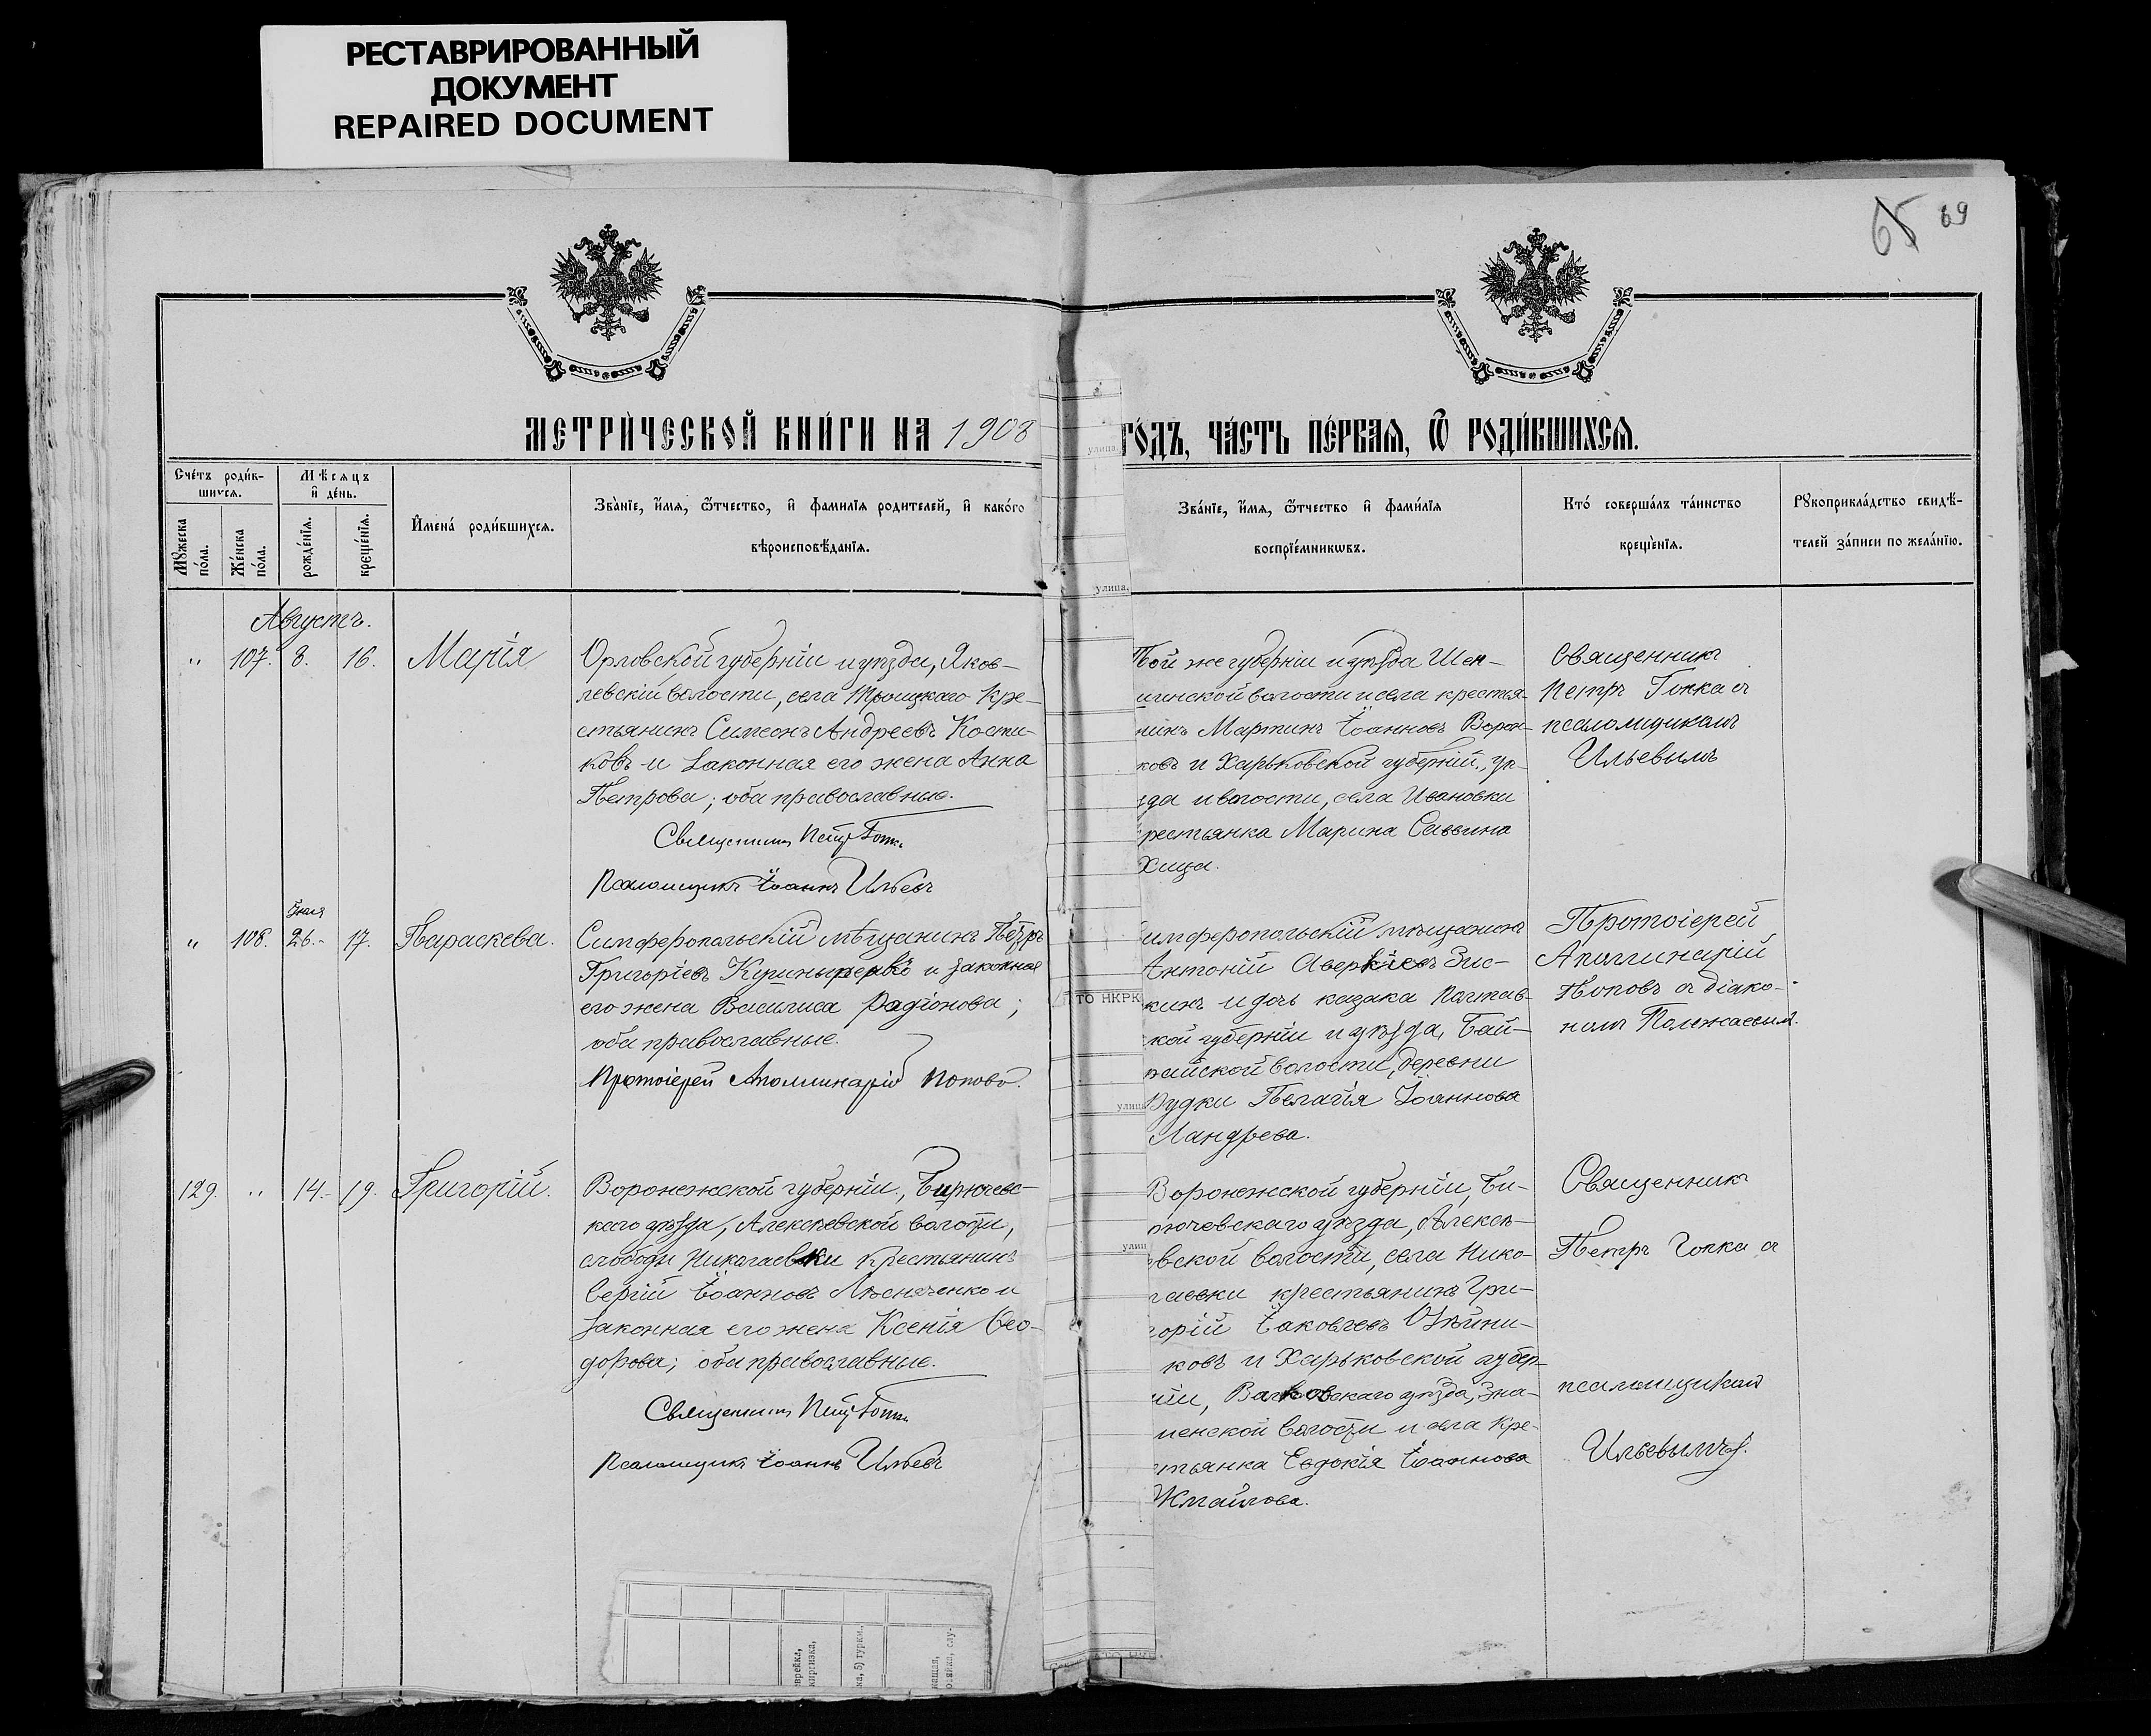 РЕСТАВРИРОВАННЫЙ
ДОКУМЕНТ
REPAIRED DOCUMENT
65 69
МЕТРИ́ЧЕСКОЙ КНИ́ГИ НА 1908
ГО́ДЪ, ЧА́СТЬ ПЕ́РВАѦ, Ѿ РОДИ́ВШИХСѦ.
Сче́тъ роди́в-
шихсѧ.
Мꙋ́жеска
по́ла.
Же́нска
по́ла.
Мѣ́сѧцъ
и҆ де́нь.
рожде́нїѧ.
креще́нїѧ.
И҆мена̀ роди́вшихсѧ.
Зва́нїе, и҆́мѧ, ѻ҆́тчество, и҆ фами́лїѧ родителей, и҆ како́гѡ
вѣроисповѣ́данїѧ.
Зва́нїе, и҆́мѧ, ѻ҆́тчество и҆ фами́лїѧ
воспрїе́мникѡвъ.
Кто̀ соверша́лъ та́инство
креще́нїѧ.
Рꙋкоприкла́дство свидѣ́-
телей за́писи по жела́нїю.
Августъ.
" 107. 8. 16. Марія
Орловской губерніи и уѣзда, Яков-
левскій волости, села Троицкаго кре-
стьянинъ Симеонъ Андреевъ Кости-
ковъ и законная его жена Анна
Петрова; оба православные.
Священникъ Петръ Гопка
Псаломщикъ Іоаннъ Ильевъ
Той же губерніи и уѣзда Шен-
шинской волости и села крестья-
нинъ Мартинъ Іоанновъ Ворон-
ковъ и Харьковской губерніи, уѣ-
зда и волости, села Ивановки
крестьянка Марина Саввина
Хица.
Священникъ
Петръ Гопка съ
псаломщикомъ
Ильевымъ
" 108. Іюля 26. 17. Параскева.
Симферопольскій мѣщанинъ Петръ
Григоріевъ и законная
его жена Василиса Родіонова;
оба православные.
Протоіерей Аполлинарій Поповъ.
Симферопольскій мѣщанинъ
Антоній Аверкіевъ Зис-
кинъ и дочь казака Полтав-
ской губерніи и уѣзда, Бай-
ракской волости, деревни
Рудки Пелагія Іоаннова
Ландрева.
Протоіерей
Аполлинарій
Поповъ съ діако-
номъ Полежаевымъ.
129. " 14. 19. Григорій.
Воронежской губерніи, Бирючевс-
каго уѣзда, Алексѣевской волости,
слободы Николаевки крестьянинъ
Сергій Іоанновъ Лѣсняченко и
законная его жена Ксенія Ѳео-
дорова; оба православные.
Священникъ Петръ Гопка
Псаломщикъ Іоаннъ Ильевъ
Воронежской губерніи, Би-
рючевскаго уѣзда, Алексѣ-
евской волости, села Нико-
лаевки крестьянинъ Гри-
горій Іаковлевъ
ковъ и Харьковской губер-
ніи, Валковскаго уѣзда, Зна-
менской волости и села кре-
стьянка Евдокія Іоаннова
Жмайлова.
Священникъ
Петръ Гопка съ
псаломщикомъ
Ильевымъ.
улица.
улица.
ТО НКРК
улица
улиц